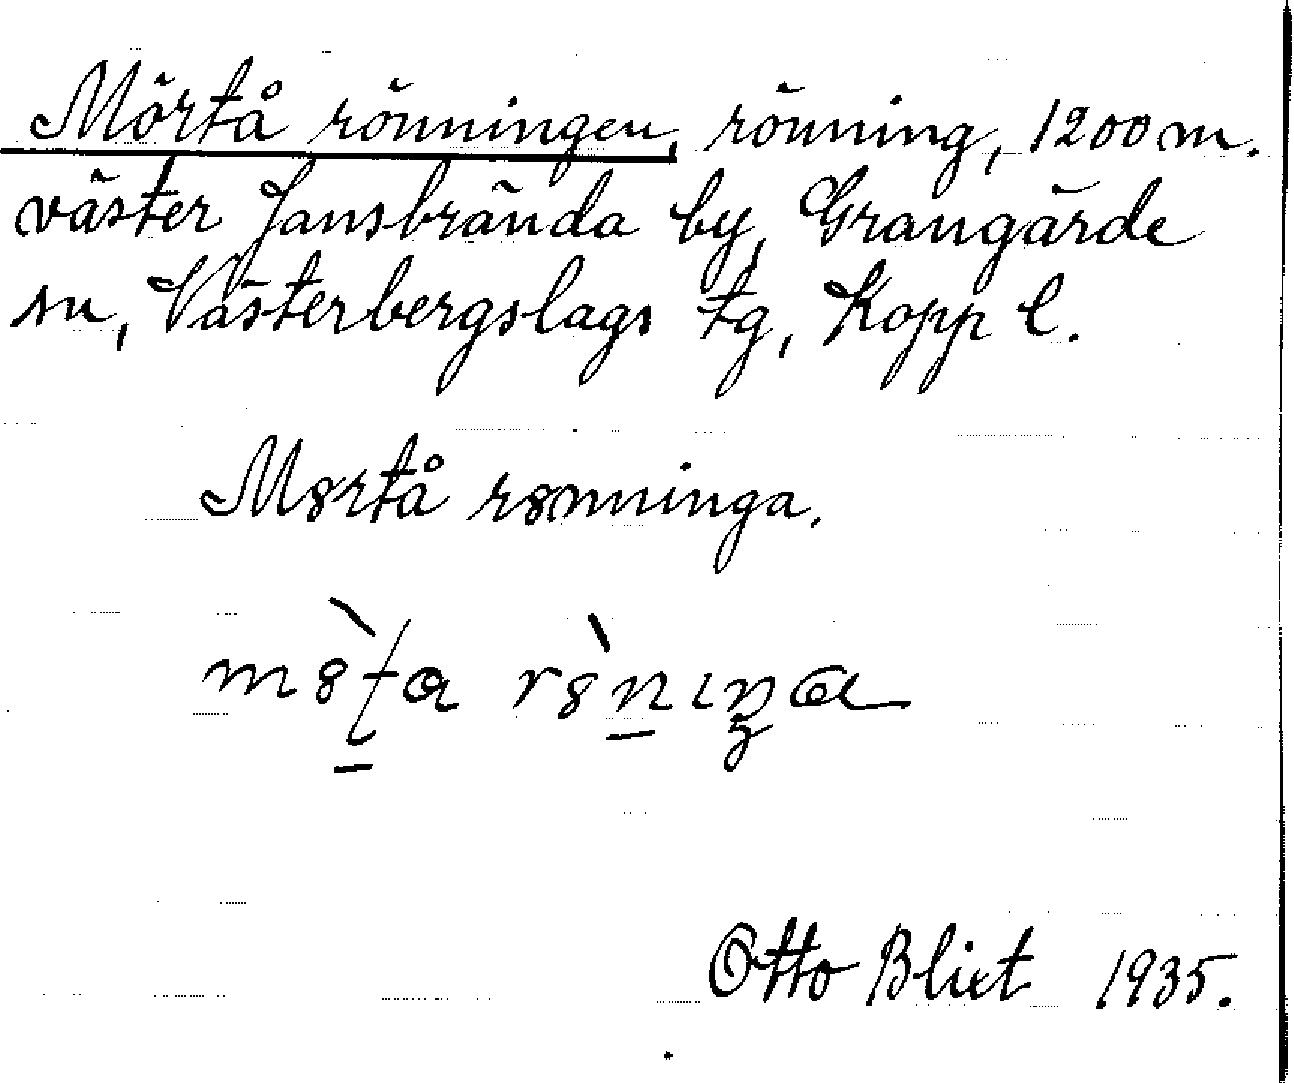 Mörtå rönningen, rönning, 1200 m.
väster Jansbrända by, Grangärde
sn, Västerbergslags tg, Kopp l.
Mørtå rønninga.
Otto Blixt 1935.